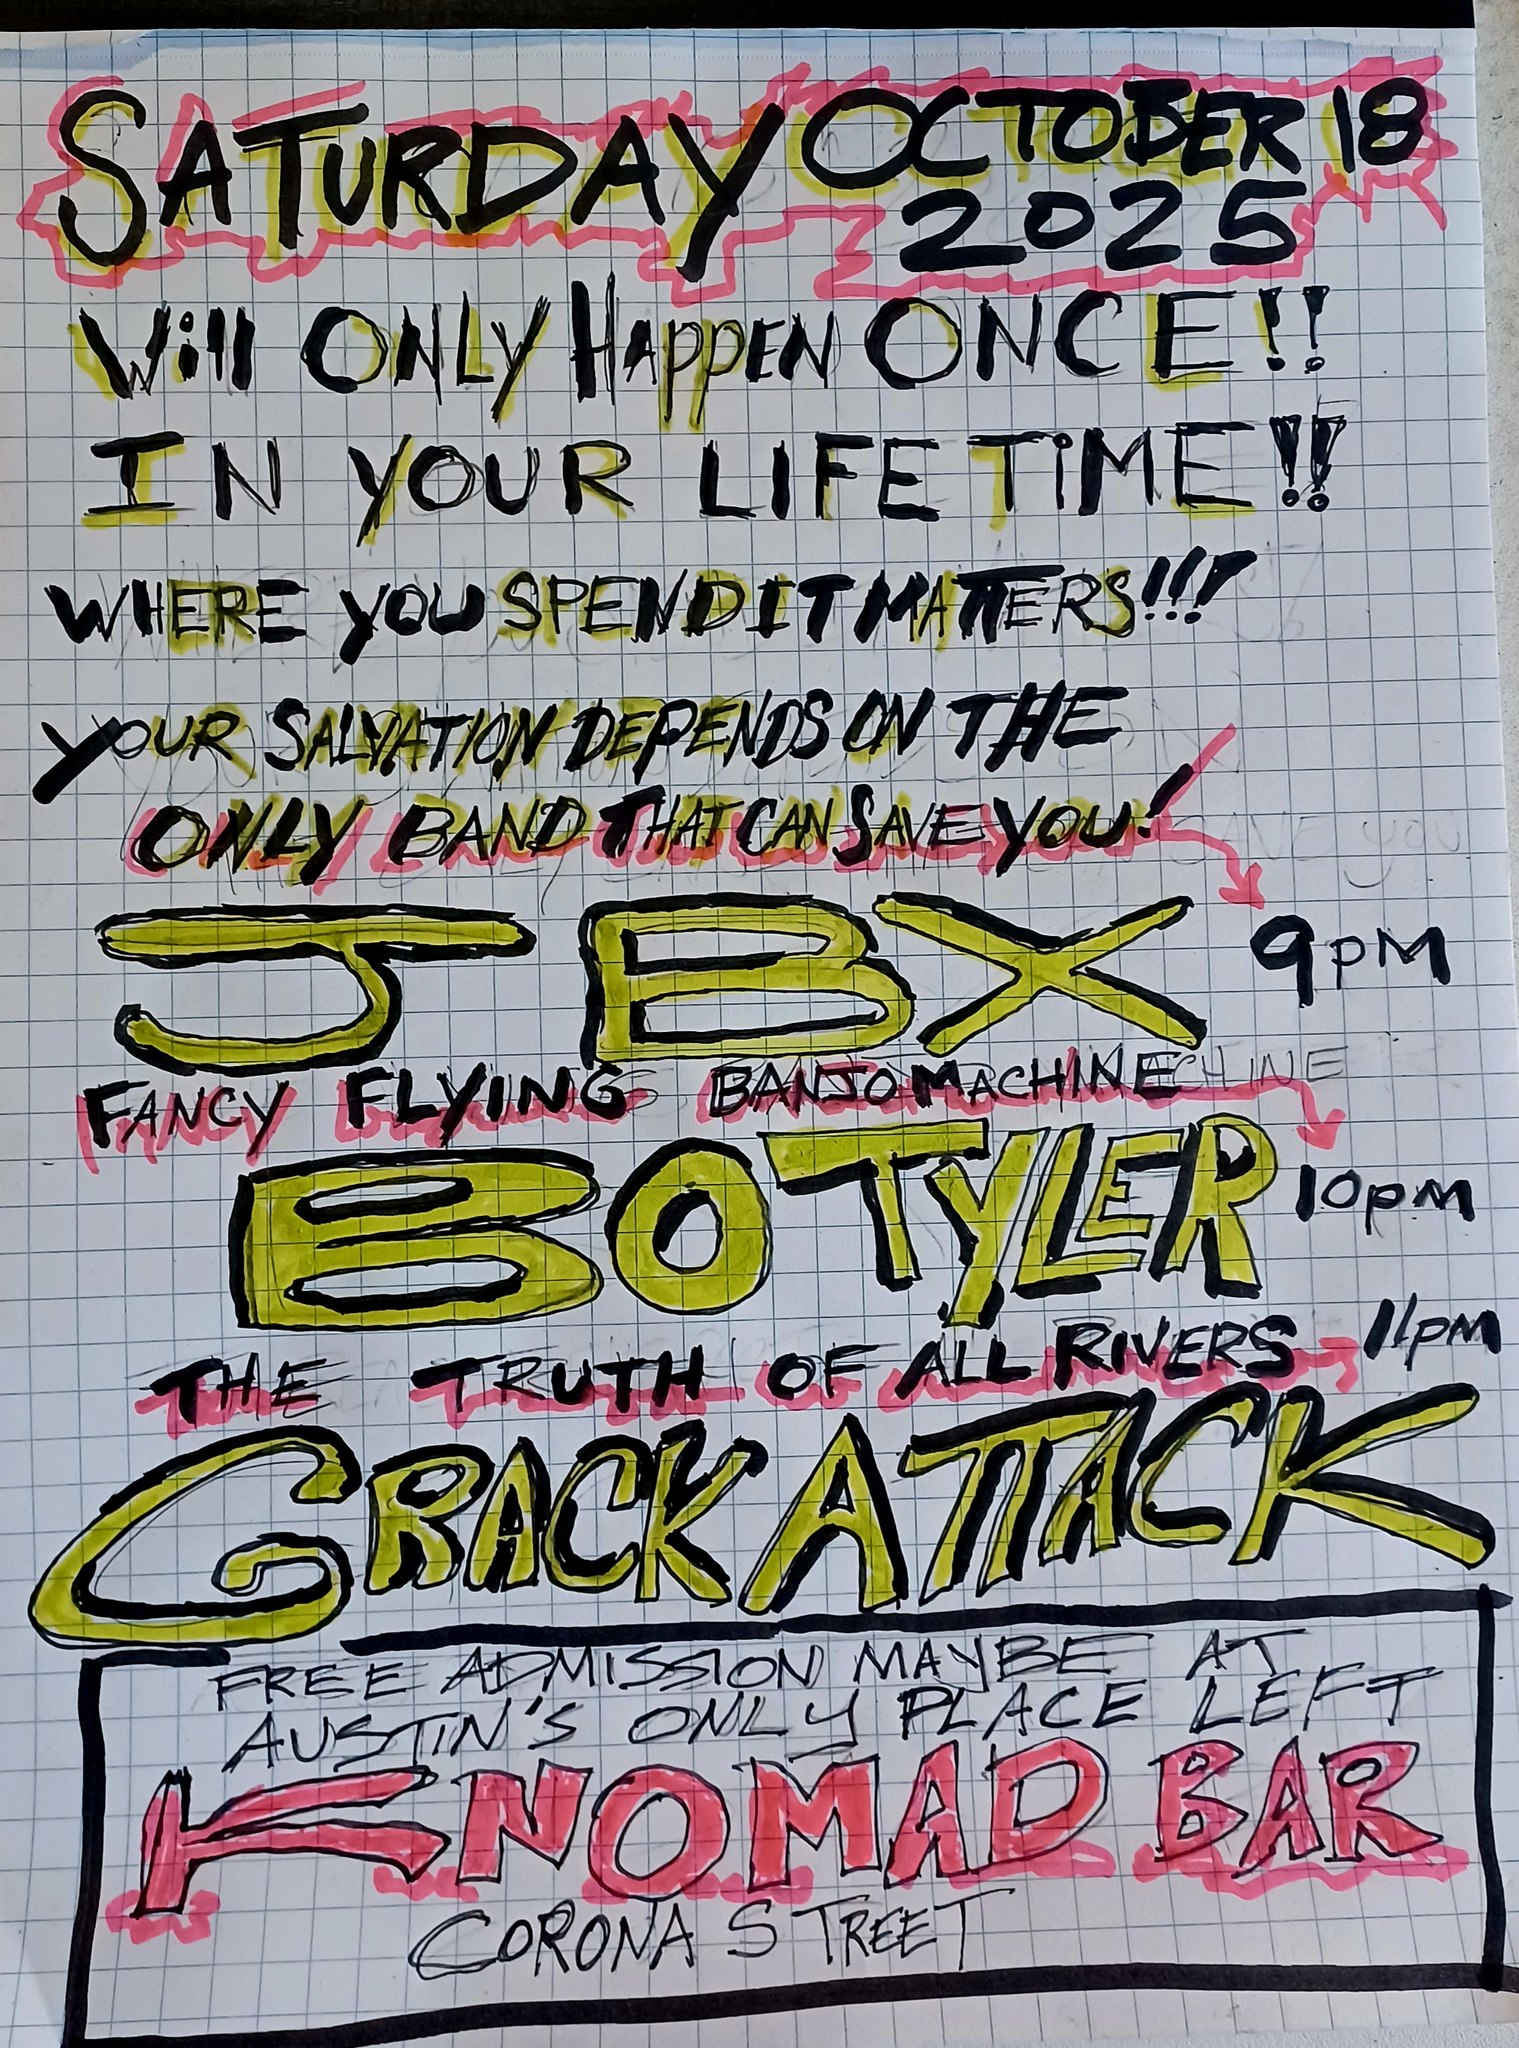 SATURDAY OCTOBER 18
2025
Will ONLY HAPPEN ONCE!!
IN YOUR LIFE TIME!!
WHERE YOU SPEND IT MATTERS!!!
YOUR SALVATION DEPENDS ON THE
ONLY BAND THAT CAN SAVE YOU!
JBX 9pm
FANCY FLYING BANJO MACHINE
BO TYLER 10pm
THE TRUTH OF ALL RIVERS 11pm
GRACK ATTACK
FREE ADMISSION MAYBE AT
AUSTIN'S ONLY PLACE LEFT
KNOMAD BAR
CORONA STREET